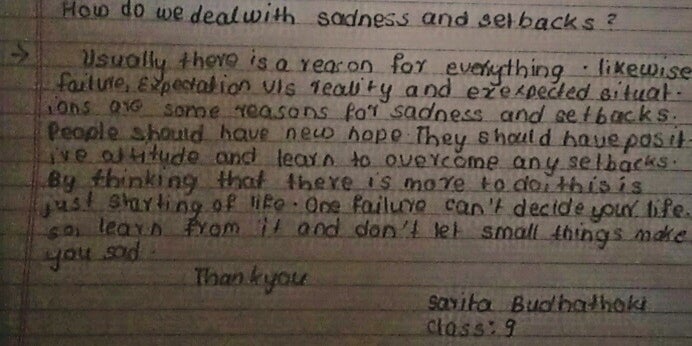 How do we deal with sadness and setbacks ?
→ Usually there is a reason for everything . likewise
failure, Expectation v/s reality and exexpected situat-
ions are some reasons for sadness and setbacks.
People should have new hope. They should have posit-
ive attitude and learn to overcome any setbacks.
By thinking that there is more to do, this is
just starting of life. One failure can't decide your life.
so, learn from it and don't let small things make
you sad.
Thankyou
Sarita Budhathoki
class: 9